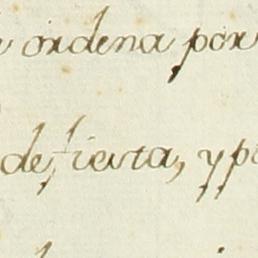 ordena por
de fiesta, y p